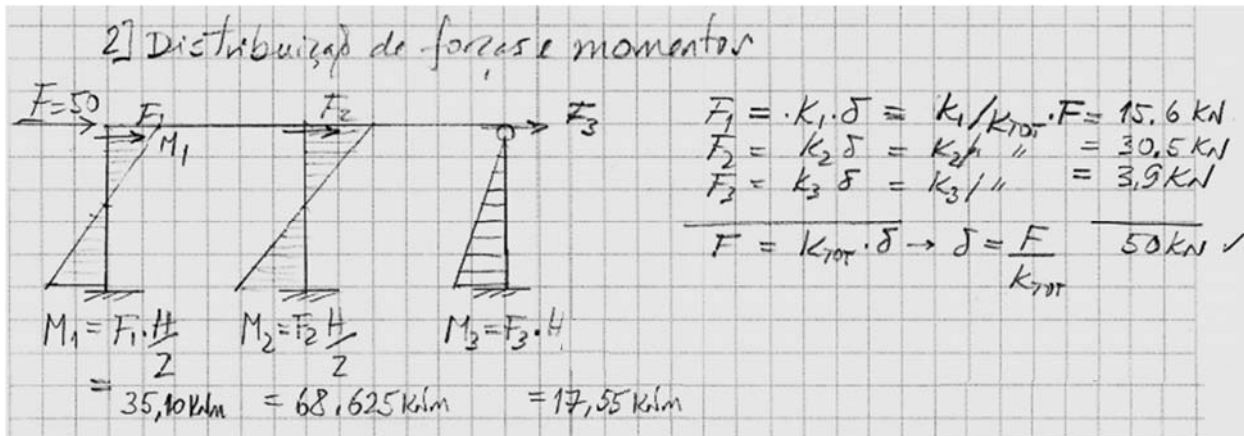 2] Distribuição de forças e momentos
F=50 F₁ F₂ F₃
M₁
F₁ = .K₁.δ = K₁/K_TOT.F = 15.6 KN
F₂ = K₂ δ = K₂/" " = 30,5 KN
F₃ = K₃ δ = K₃/" = 3,9 KN
F = K_TOT.δ → δ = F/K_TOT 50 KN ✓
M₁ = F₁.H/2 M₂ = F₂ H/2 M₃ = F₃.H
= 35,10 KNm = 68.625 KNm = 17,55 KNm